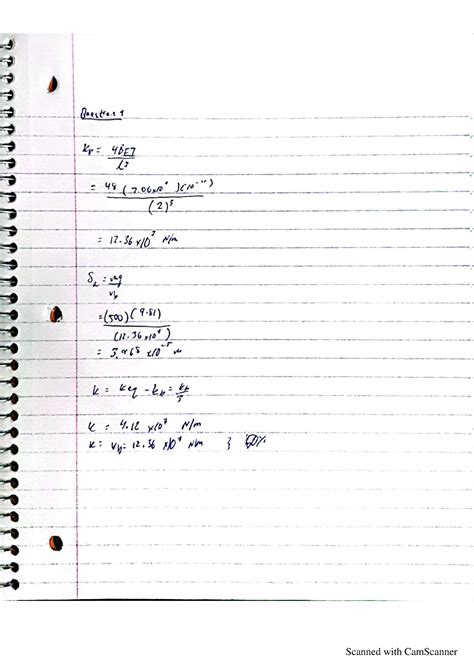 Question 1
kp = 48EI / L3
= 48 (7.06x10 )(10 ) / (2)3
= 12.36 x10 7 N/m
δ = mg / kp
= (500)(9.81) / (12.36 x10 7)
= 3. 68 x10 -5 m
k = keq - kp = kp / 3
k = 4.12 x10 7 N/m
k = kp = 12.36 x10 7 N/m } 50%
Scanned with CamScanner